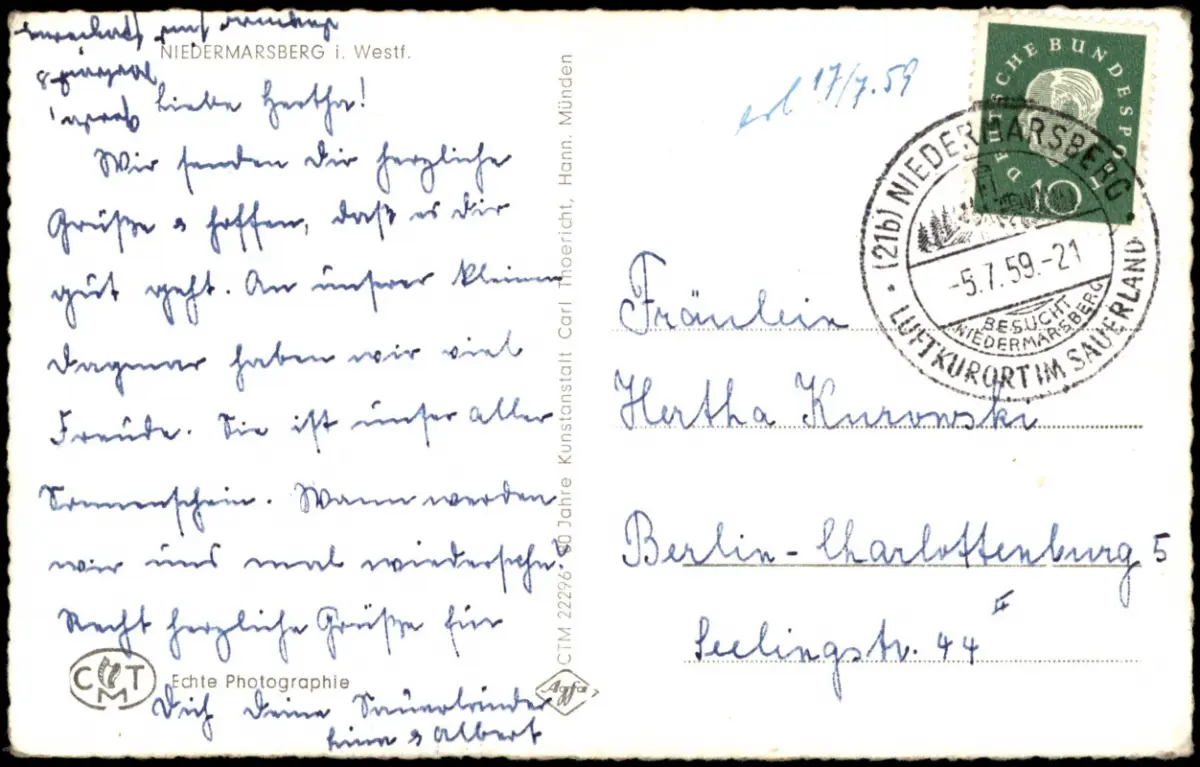 NIEDERMARSBERG i. Westf.
Liebe Hertha!
Wir senden Dir herzliche
Grüße & hoffen, daß es Dir
gut geht. An unserer kleinen
Dagmar haben wir viel
Freude. Sie ist unser aller
Sonnenschein. Wann werden
wir uns mal wiedersehn?
Recht herzliche Grüße für
Dich Deine Sauerländer
& Albert
CMT
Echte Photographie
CTM 22296 60 Jahre Kunstanstalt Carl Thoericht, Hann. Münden
Agfa
erl 17/7.59
DEUTSCHE BUNDESPOST
10
(21b) NIEDERMARSBERG
-5.7.59.-21
BESUCHT
NIEDERMARSBERG
LUFTKURORT IM SAUERLAND
Fräulein
Hertha Kurowski
Berlin-Charlottenburg 5
Seelingstr. 44